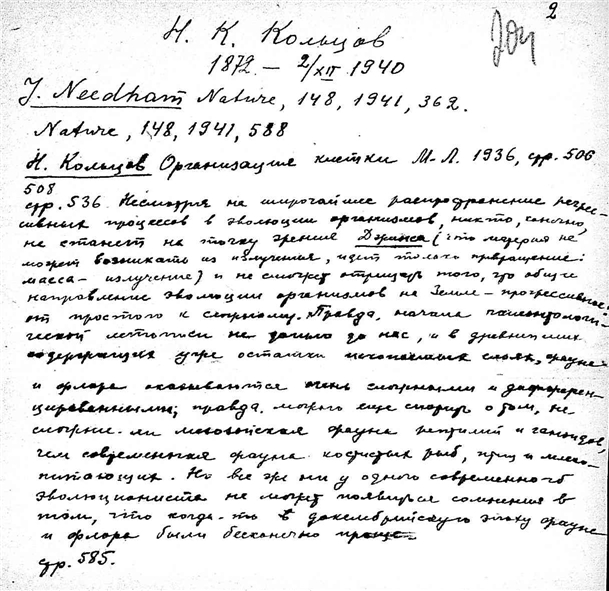 2
204
Н. К. Кольцов
1872 – 2/XII 1940
J. Needham Nature, 148, 1941, 362.
Nature, 148, 1941, 588
Н. Кольцов Организация клетки М-Л. 1936, стр. 506
508
стр. 536. Несмотря на широчайшее распространение регрес-
сивных процессов в эволюции организмов, никто, конечно,
не станет на точку зрения Джинса (что материя не
может возникать из излучения, идет только превращение:
масса – излучение) и не сможет отрицать того, что общее
направление эволюции организмов на Земле – прогрессивное:
от простого к сложному. Правда, начала палеонтологи-
ческой летописи не дошло до нас, и в древнейших
содержащих уже остатки ископаемых слоях, фауна
и флора оказываются очень сложными и дифферен-
цированными; правда, можно еще спорить о том, не
сложнее ли мезозойская фауна рептилий и ганоидов,
чем современная фауна костистых рыб, птиц и млеко-
питающих. Но все же ни у одного современного
эволюциониста не может появиться сомнения в
том, что когда-то в докембрийскую эпоху фауна
и флора были бесконечно проще.
стр. 585.